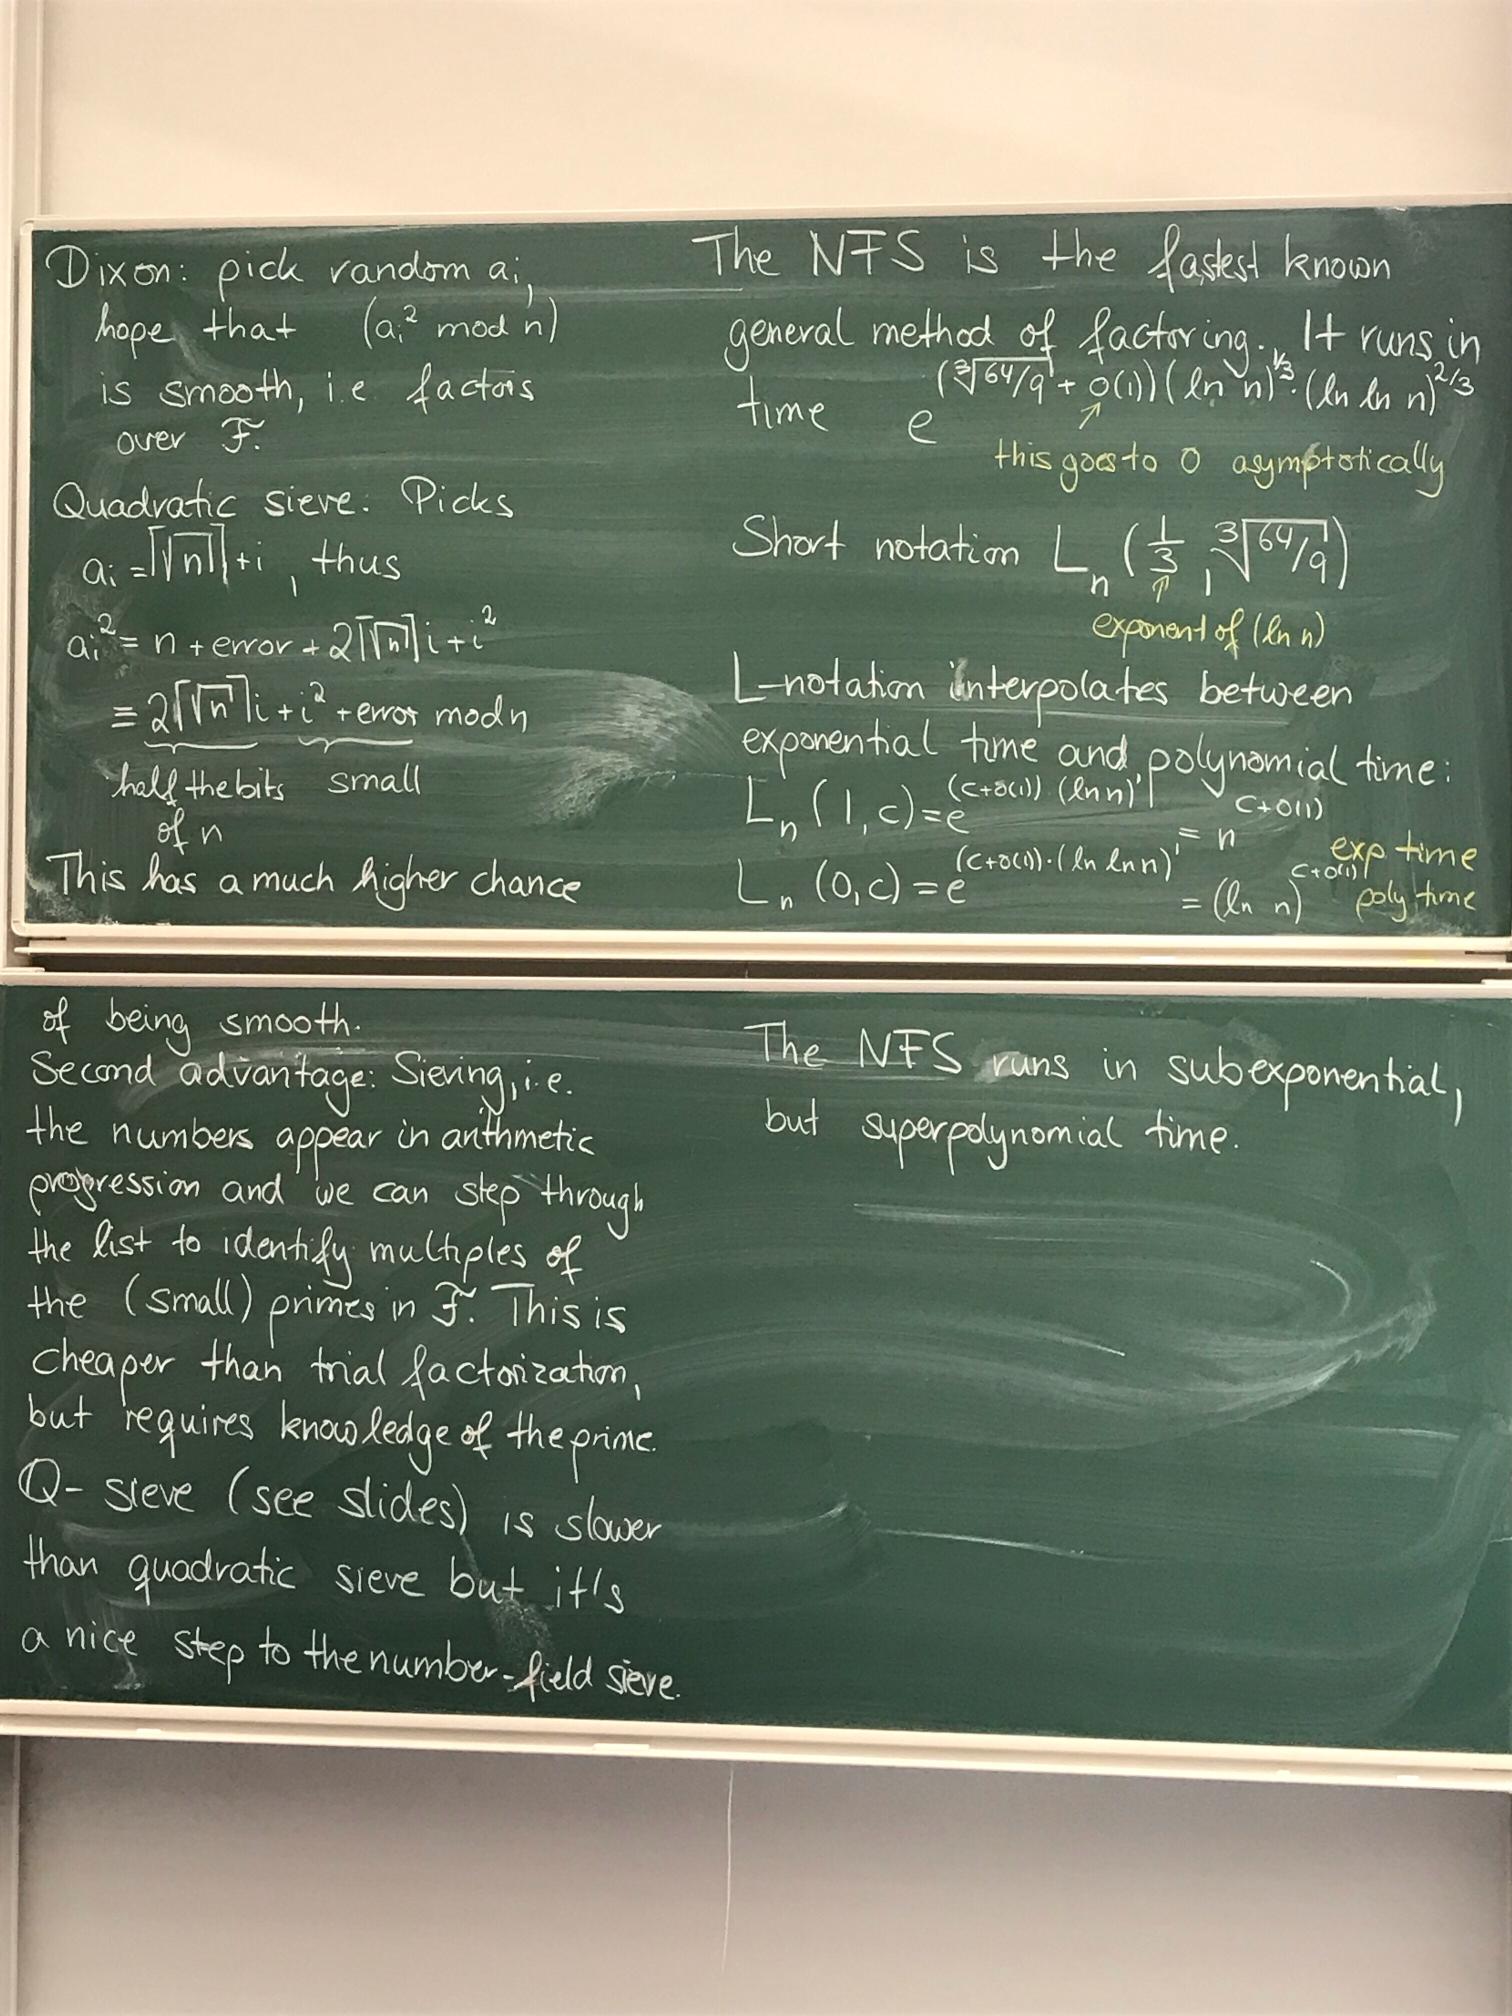 Dixon: pick random aᵢ,
hope that (aᵢ² mod n)
is smooth, i.e factors
over F.
Quadratic sieve: Picks
aᵢ = ⌈√n⌉ + i , thus
aᵢ² = n + error + 2⌈√n⌉i + i²
≡ 2⌈√n⌉i + i² + error mod n
half the bits small
of n
This has a much higher chance
of being smooth.
Second advantage: Sieving, i.e.
the numbers appear in arithmetic
progression and we can step through
the list to identify multiples of
the (small) primes in F. This is
cheaper than trial factorization,
but requires knowledge of the prime.
Q-sieve (see slides) is slower
than quadratic sieve but it's
a nice step to the number-field sieve.
The NFS is the fastest known
general method of factoring. It runs in
time e^(∛64/9 + o(1)) (ln n)^1/3 · (ln ln n)^2/3
this goes to 0 asymptotically
Short notation Lₙ (1/3, ∛64/9)
exponent of (ln n)
L-notation interpolates between
exponential time and polynomial time:
Lₙ (1, c) = e^(c+o(1)) (ln n)^1 = n^c+o(1) exp time
Lₙ (0, c) = e^(c+o(1))·(ln ln n)^1 = (ln n)^c+o(1) poly time
The NFS runs in subexponential,
but superpolynomial time.